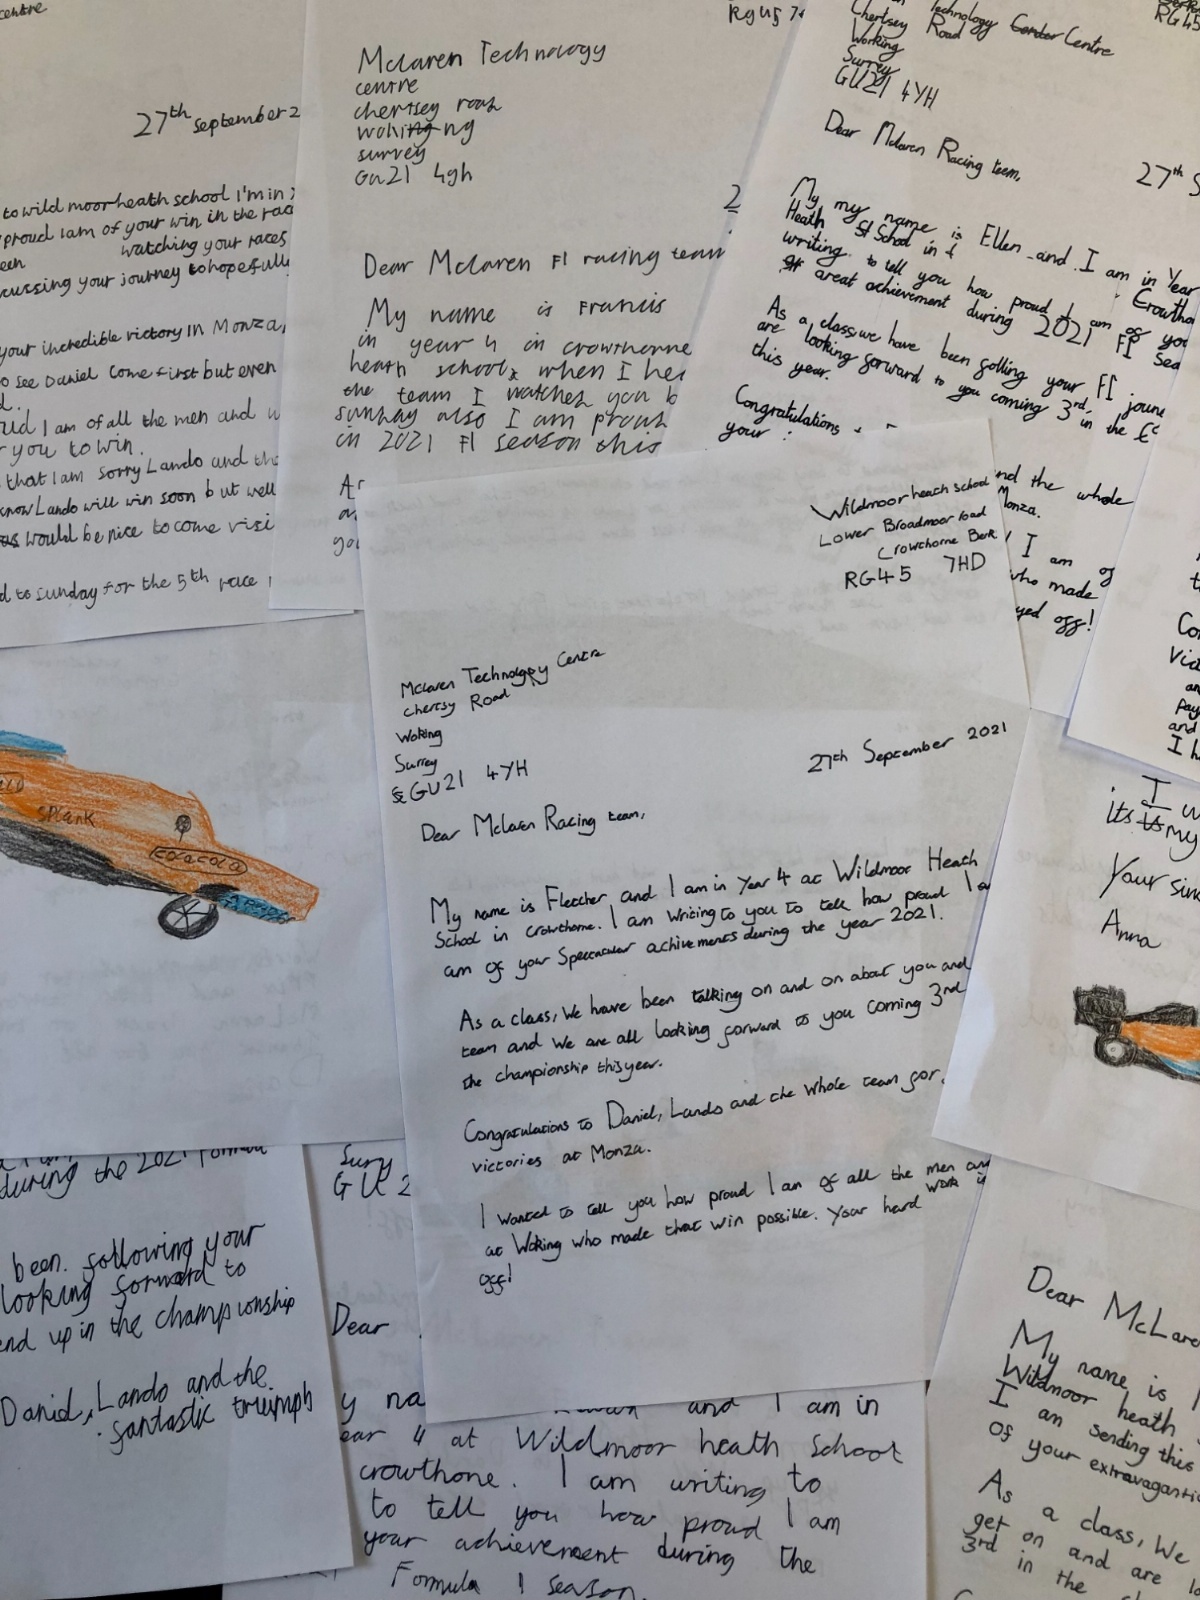 centre
27th september 2
to wild moor heath school I'm in
proud I am of your win in the rac
een watching your races
cussing your journey to hopefully
your incredible victory in Monza,
o see Daniel come first but even
d.
ud I am of all the men and w
you to win.
that I am sorry Lando and the
know Lando will win soon but well
would be nice to come visi
d to sunday for the 5th race
Mclaren Technology
centre
chertsey road
woking ng
surrey
Gu21 4gh
2
Dear Mclaren F1 racing team
My name is Francis
in year 4 in crowthorne
heath school, when I hea
the team I watches you b
sunday also I am proud
in 2021 F1 season this
RG45
Technology Center Centre
Chertsey Road
Working
Surrey
GU21 4YH
Dear Mclaren Racing team,
27th S
My my name is Ellen and I am in Year
Heath St School in Crowtho
writing to tell you how proud I am of you
great achievement during 2021 F1 sea
As a class, we have been folling your F1 journ
are looking forward to you coming 3rd, in the
this year.
Congratulations
your
nd the whole
Monza.
I am of
who made
yed off!
Wildmoor heath school
Lower Broadmoor road
Crowthorne Berk
RG45 7HD
Mclaren Technology Centre
chertsy Road
Woking
Surrey
GU21 4YH
27th September 2021
Dear Mclaren Racing team,
My name is Fletcher and I am in Year 4 at Wildmoor Heath
School in crowthorne. I am writing to you to tell how proud I a
am of your Spectacular achivements during the year 2021.
As a class, We have been talking on and on about you and
team and we are all looking forward to you coming 3rd
the championship this year.
Congratulations to Daniel, Lando and the whole team for.
victories at Monza.
I wanted to tell you how proud I am of all the men an
at Woking who made that win possible. Your hard work is
off!
splunk
cocacola
Co
vic
an
pay
and
I h
I w
its is my
Your sinc
Anna
during the 2021 Formula
been following your
looking forward to
end up in the championship
Daniel, Lando and the
fantastic triumph
Surry
GU2
Dear
y na and I am in
ear 4 at Wildmoor heath School
crowthone. I am writing to
to tell you how proud I am
your achievement during the
Formula 1 season.
Dear McLare
My name is
Wildmoor heath
I am sending this
of your extravaganti
As a class, We
get on and are lo
3rd in the